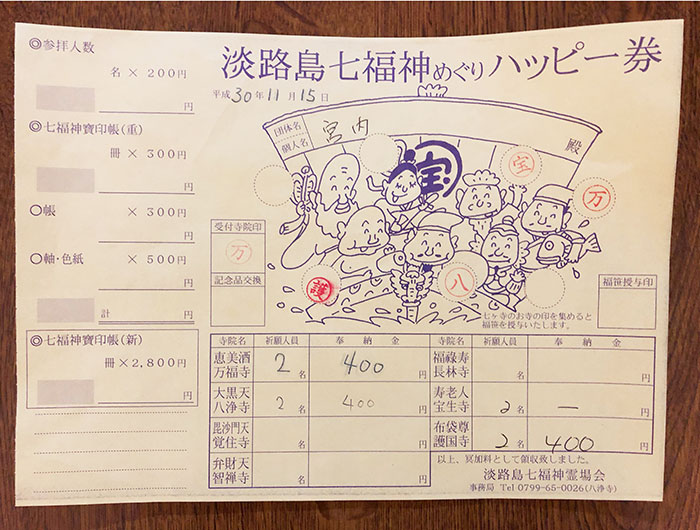 ◎参拝人数
名 × 200円
円
◎七福神寶印帳(重)
冊 × 300円
円
〇帳
× 300円
円
〇軸・色紙
× 500円
円
計 円
◎七福神寶印帳(新)
冊×2,800円
円
淡路島七福神めぐりハッピー券
平成30年11月15日
団体名
個人名
宮内
殿
宝
宝
万
受付寺院印
万
記念品交換
護
八
福笹授与印
七ヶ寺のお寺の印を集めると
福笹を授与いたします。
寺院名 祈願人員 奉納金
恵美酒
万福寺 2名 400円
大黒天
八浄寺 2名 400円
毘沙門天
覚住寺 名 円
弁財天
智禪寺 名 円
寺院名 祈願人員 奉納金
福禄寿
長林寺 名 円
寿老人
宝生寺 2名 ー 円
布袋尊
護国寺 2名 400円
以上、冥加料として領収致しました。
淡路島七福神霊場会
事務局 Tel 0799-65-0026(八浄寺)